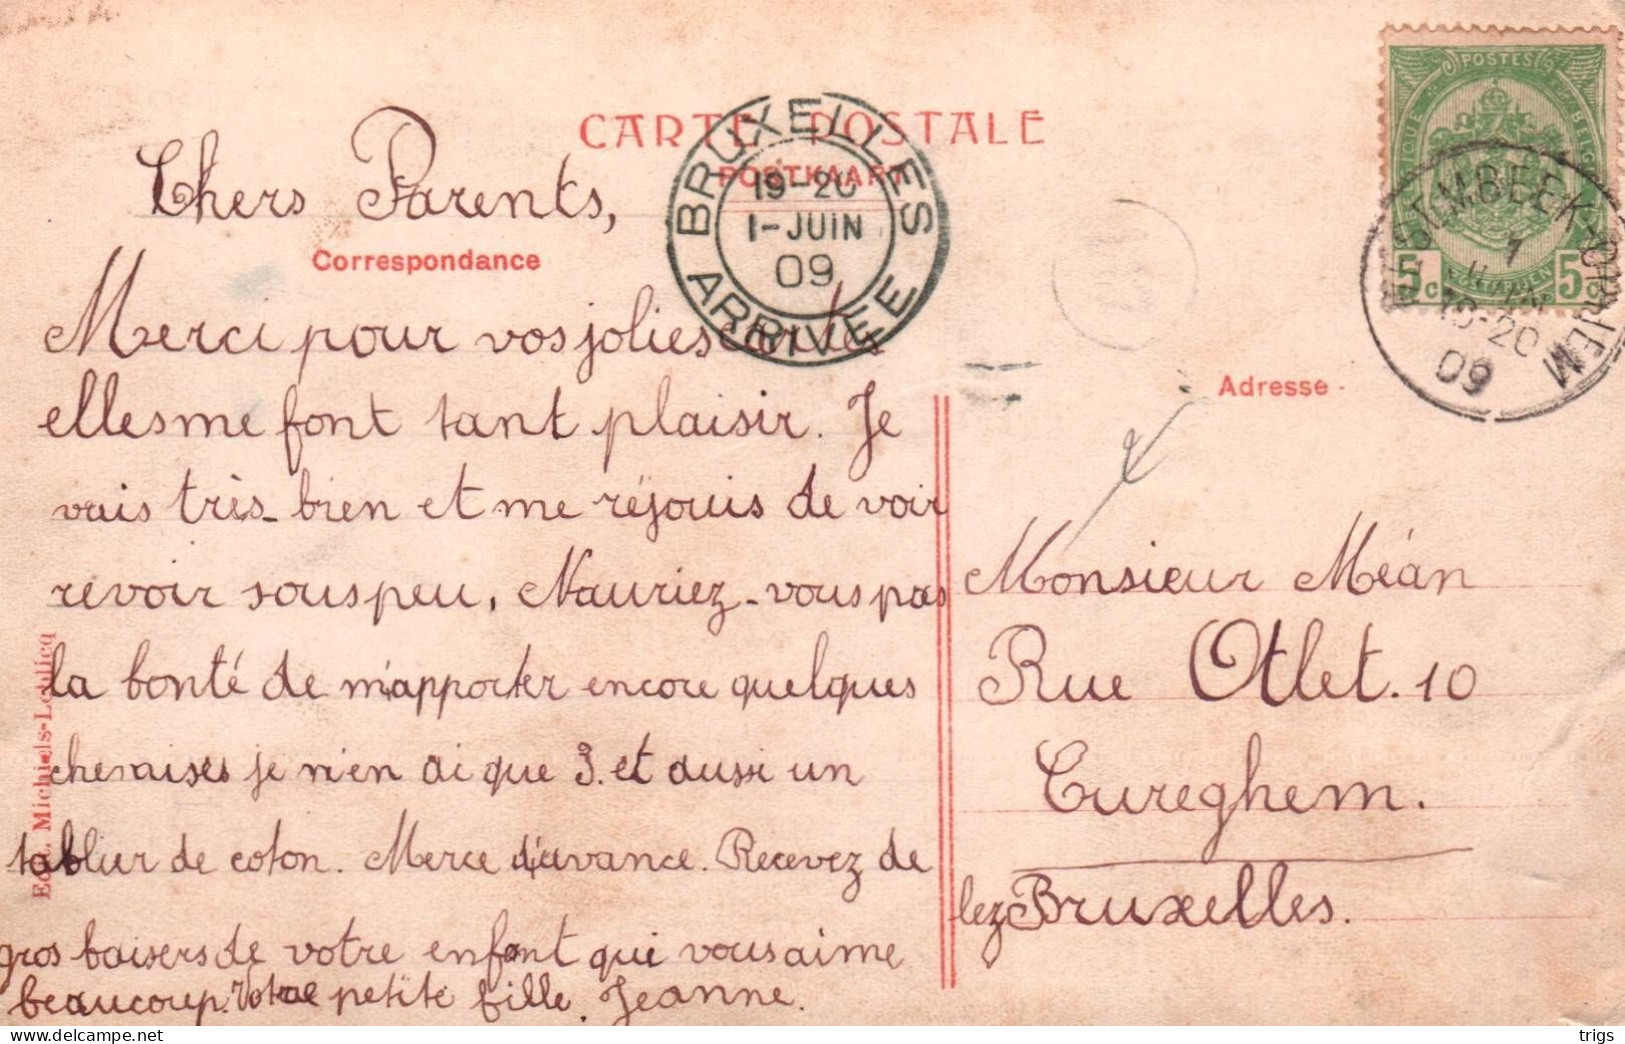 CARTE POSTALE
POSTKAART
BRUXELLES
19-20
1-JUIN
09
ARRIVEE
POSTES
BELGIQUE
5c 5c
1
09
Chers Parents,
Correspondance
Merci pour vos jolies cartes
elles me font tant plaisir. Je
vais très-bien et me réjouis de voir
revoir sous peu. Nauriez-vous pas
la bonté de m'apporter encore quelques
chemaises je n'en ai que 3. et aussi un
tablier de coton. Merce d'avance. Recevez de
gros baisers de votre enfant qui vous aime
beaucoup. Votre petite fille Jeanne.
Adresse
Monsieur Méan
Rue Otlet. 10
Cureghem.
lez Bruxelles.
trigs